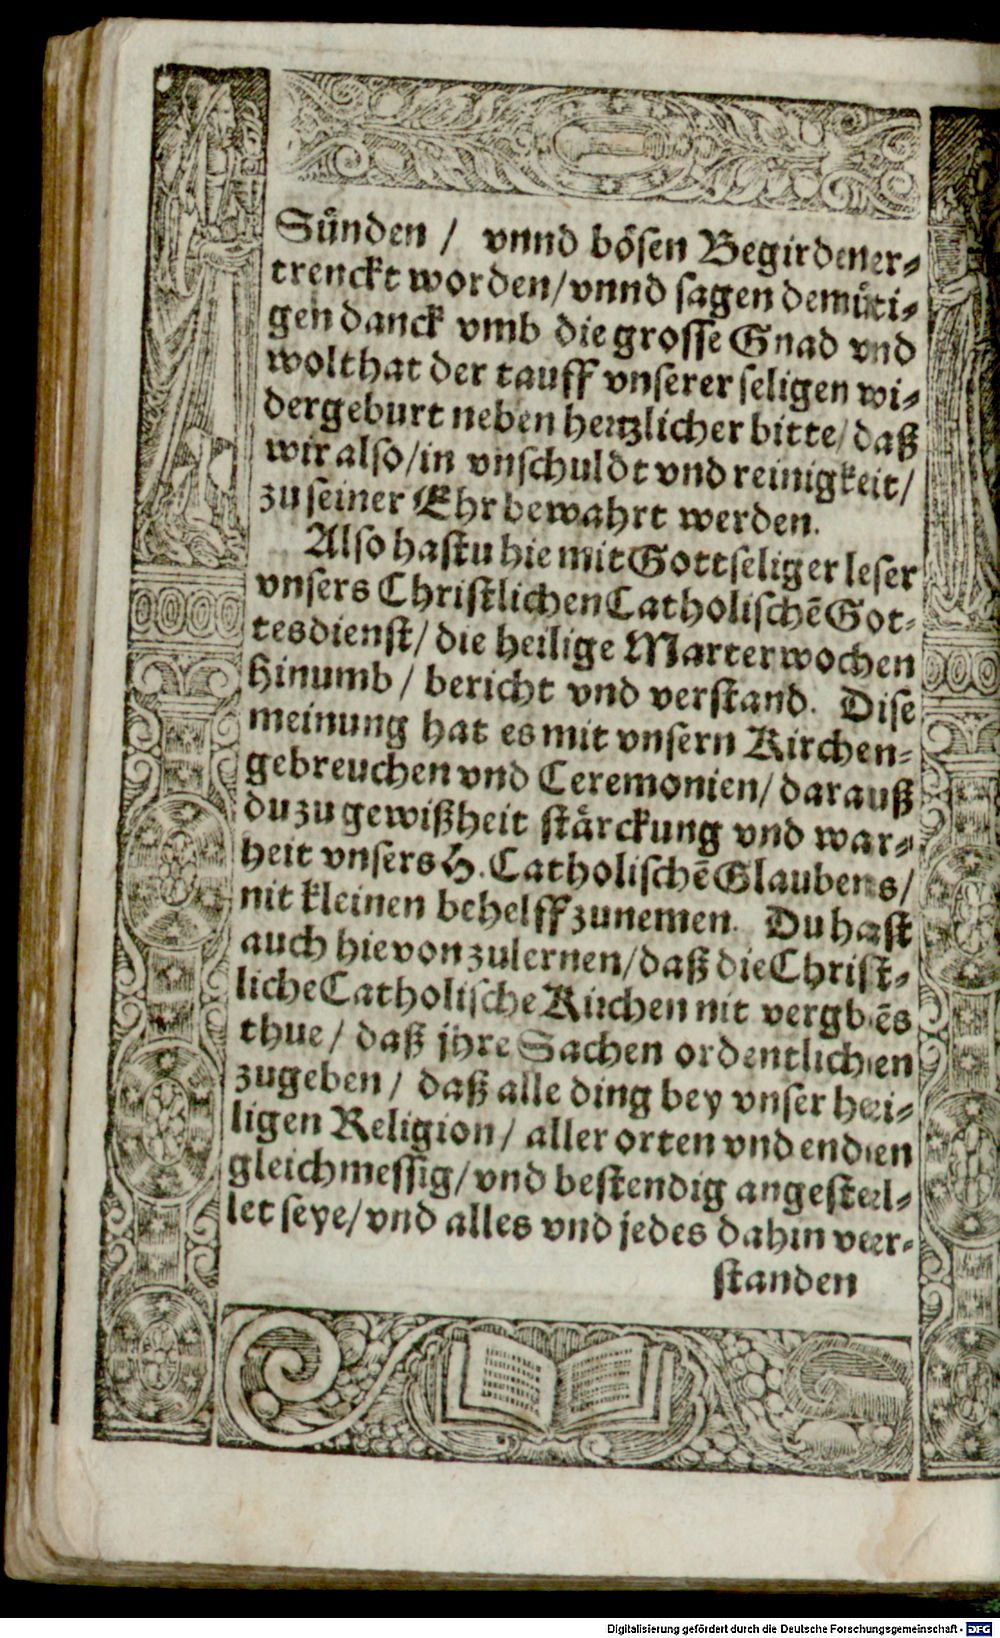 Sünden / vnnd bösen Begirden er-
trenckt worden / vnnd sagen demüti-
gen danck vmb die grosse Gnad vnd
wolthat der tauff vnserer seligen wi-
dergeburt neben hertzlicher bitte / daß
wir also / in vnschuldt vnd reinigkeit /
zu seiner Ehr bewahrt werden.
Also hastu hie mit Gottseliger leser
vnsers Christlichen Catholischē Got-
tesdienst / die heilige Marterwochen
hinumb / bericht vnd verstand. Dise
meinung hat es mit vnsern Kirchen-
gebreuchen vnd Ceremonien / darauß
du zu gewißheit stärckung vnd war-
heit vnsers H. Catholischē Glaubens /
nit kleinen behelff zunemen. Du hast
auch hievon zulernen / daß die Christ-
liche Catholische Kirchen nit vergbēs
thue / daß jhre Sachen ordentlichen
zugeben / daß alle ding bey vnser hei-
ligen Religion / aller orten vnd enden
gleichmessig / vnd bestendig angestel-
let seye / vnd alles vnd jedes dahin ver-
standen
Digitalisierung gefördert durch die Deutsche Forschungsgemeinschaft - DFG